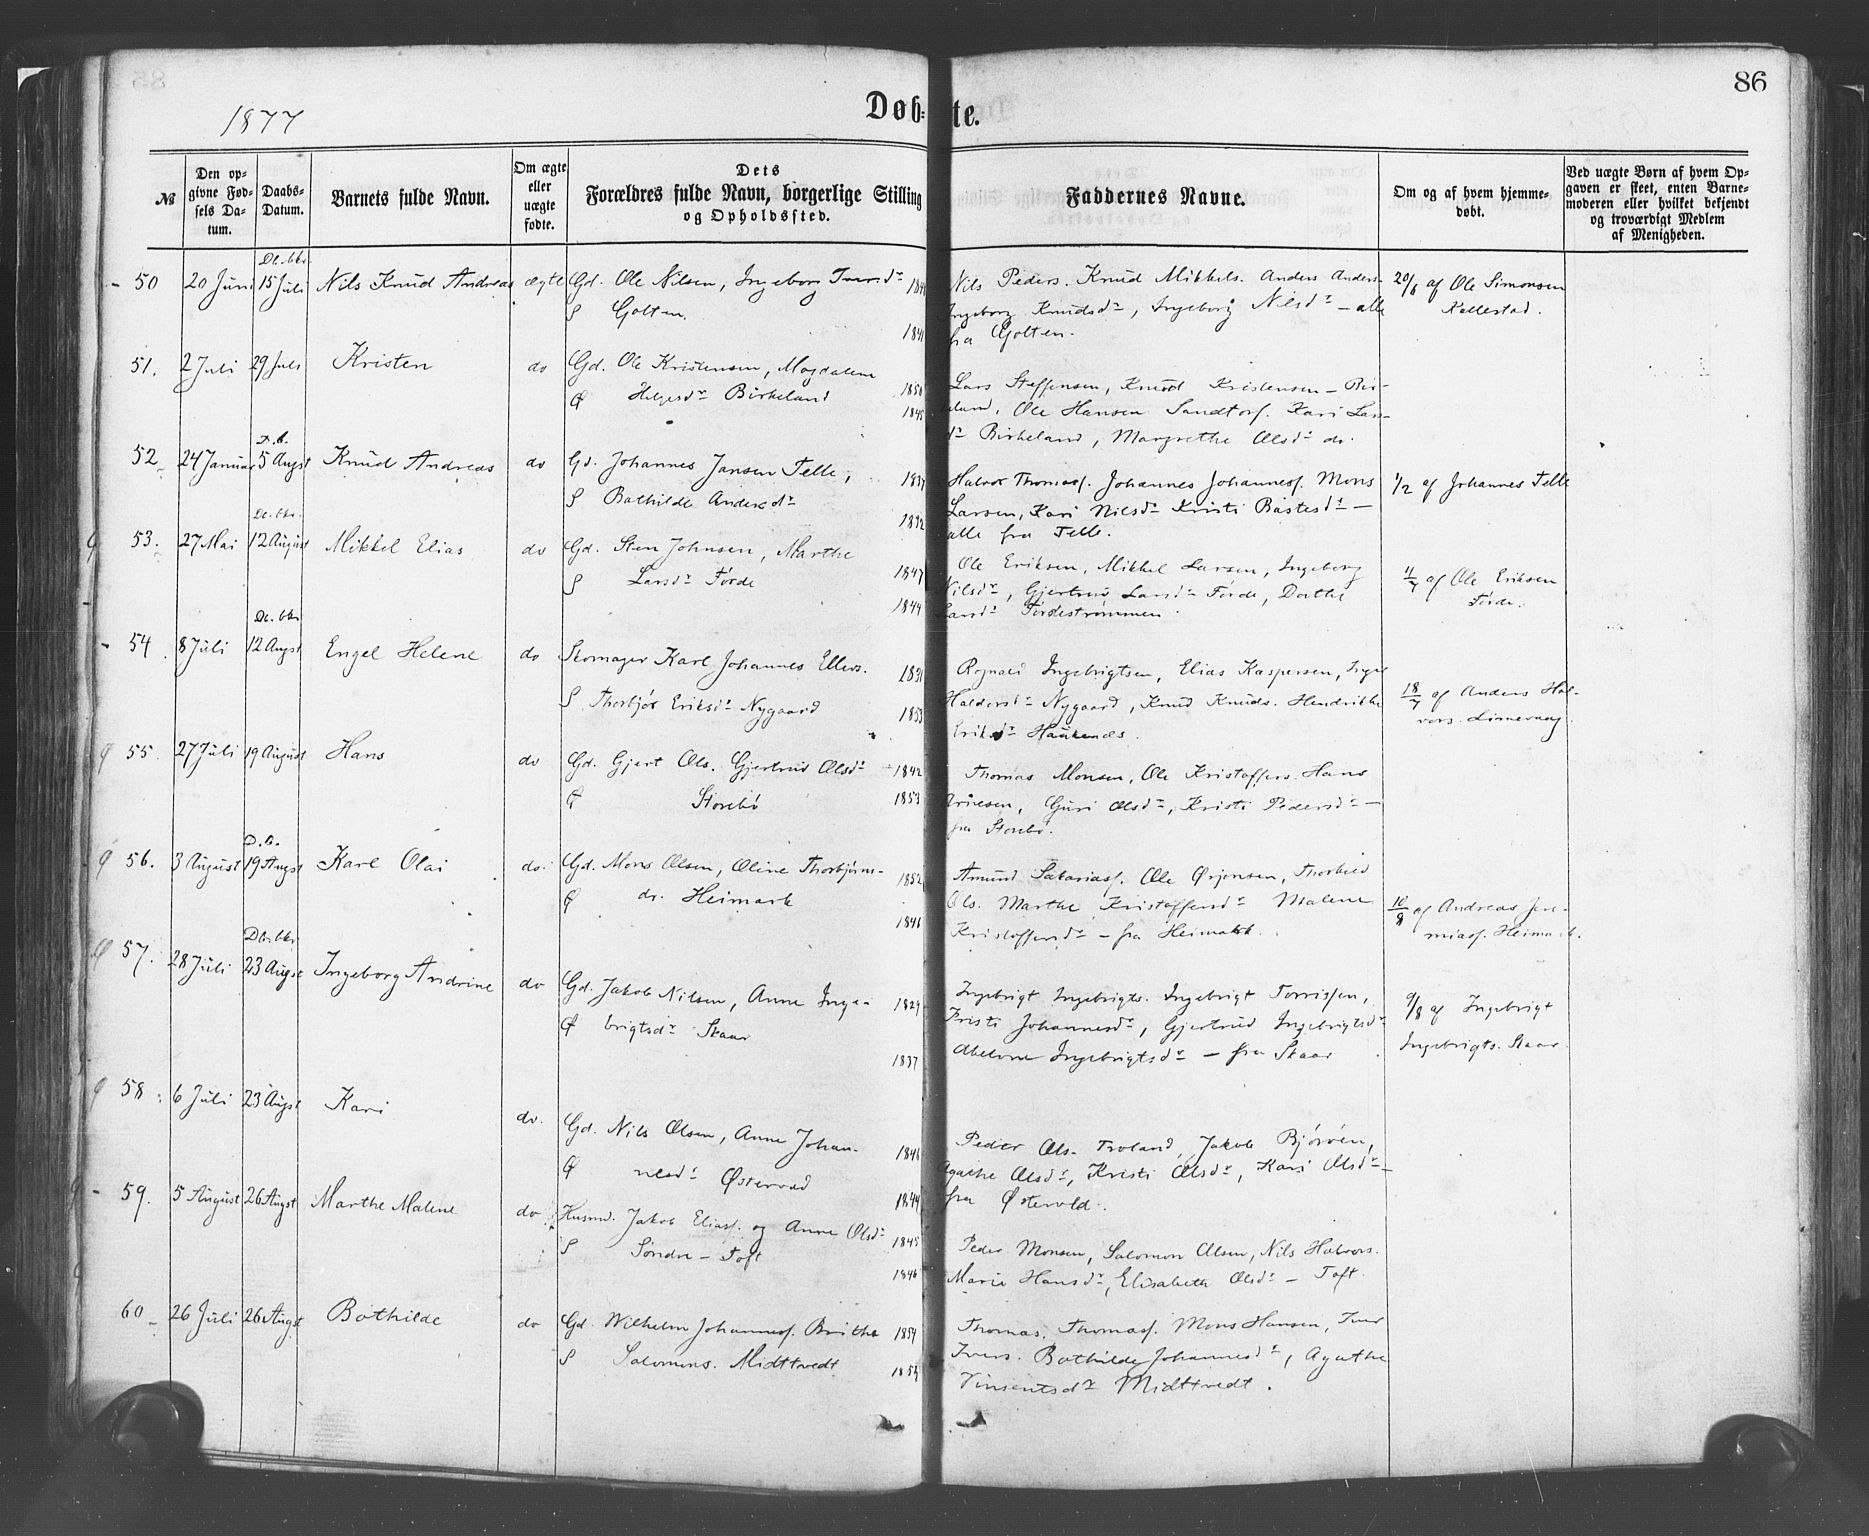 86
1877
Døb-te.
№ | Den opgivne Fødsels Datum. | Daabs-Datum. | Barnets fulde Navn. | Om ægte eller uægte fødte. | Dets Forældres fulde Navn, borgerlige Stilling og Opholdssted. | Faddernes Navne. | Om og af hvem hjemmedøbt. | Ved uægte Børn af hvem Opgaven er skeet, enten Barnemoderen eller hvilket bekjendt og troværdigt Medlem af Menigheden.
50 20 Juni 15 Juli Nils Knud Andreas ægte Gd. Ole Nilsen, Ingeborg
S Golten. 1841
Nils Peders. Knud Mikkels. Anders Anders.
Ingeborg Knudsdr, Ingeborg Nilsdr – alle
fra Golten.
20/6 af Ole Simonsen
Kallestad.
51. 2 Juli 29 Juli Kristen do Gd. Ole Kristensen, Magdalene 1850
Ø Helgesdr Birkeland 1845
Lars Steffensen, Knud Kristensen – Bir-
keland, Ole Hansen Sandtorf. Kari Lars-
dr Birkeland, Margrethe Olsdr do.
52 24 Januar 5 Augst Knud Andreas do Gd. Johannes Jansen Telle,
S Bothilde Andersdr 1832
Halvor Thomasf. Johannes Johannesf. Mons
Larsen, Kari Nilsdr Kristi Bastesdr –
alle fra Telle.
1/2 af Johannes Telle
53. 27 Mai 12 August Mikkel Elias do Gd. Sten Johnsen, Marthe 1847
S Larsdr Førde 1844
Ole Eriksen, Mikkel Larsen, Ingeborg
Nilsdr, Gjertrud Larsdr Førde, Dorthe
Larsdr Førdestrømmen.
af Ole Eriksen
Førde.
54 8 Juli 12 Augst Engel Helene do Skomager Karl Johannes Ellers. 1831
S Thorbjør Eriksdr Nygaard 1853
Rognald Ingebrigtsen, Elias Kaspersen, Inger
Haldorsdr Nygaard, Knud Knuds. Hendrikke
Eriksdr Haukenæs.
18/7 af Anders Hal-
vors. Linnevaag.
55. 27 Juli 19 August Hans do Gd. Gjert Ols. Gjertrud Olsdr 1842
Ø Storebø 1853
Thomas Monsen, Ole Kristoffers. Hans
Guri Olsdr, Kristi Pedersdr –
fra Storebø.
56. 3 August 19 Augst Karl Olai do. Gd. Mons Olsen, Oline Thorbjørns- 1852
Ø dr. Heimark 1846
Amund Sakariasf. Ole Ørjensen, Thorkild
Ols. Marthe Kristoffersdr Malene
Kristoffersdr – fra Heimark.
10/8 af Andreas Jere-
miasf. Heimark.
57. 28 Juli 23 Augst Ingeborg Andrine do Gd. Jakob Nilsen, Anne Inge- 1829
Ø brigtsdr Skaar 1837
Ingebrigt Ingebrigts. Ingebrigt Torrissen,
Kristi Johannesdr, Gjertrud Ingebrigtsdr
Abelone Ingebrigtsdr – fra Skaar
9/8 af Ingebrigt
Ingebrigts. Skaar.
58 6 Juli 23 Augst Kari do. Gd. Nils Olsen, Anne Johan- 1846
Ø nesdr Østervold 1844
Peder Ols. Troland, Jakob Bjørøen,
Agathe Olsdr, Kristi Olsdr, Kari Olsdr –
fra Østervold.
59. 5 August 26 Augst Marthe Malene do Husmd. Jakob Eliasf. og Anne Olsdr 1845
S Søndre – Toft 1846
Peder Monsen, Salomon Olsen, Nils Halvors.
Marie Hansdr, Elisabeth Olsdr – Toft.
60 26 Juli 26 Augst Bothilde do Gd. Wilhelm Johannesf. Brithe 1854
S Salomons. Midttvedt
Thomas Thomasf. Mons Hansen, Iver
Ivers. Bothilde Johannesdr, Agathe
Vinsentsdr Midttvedt.